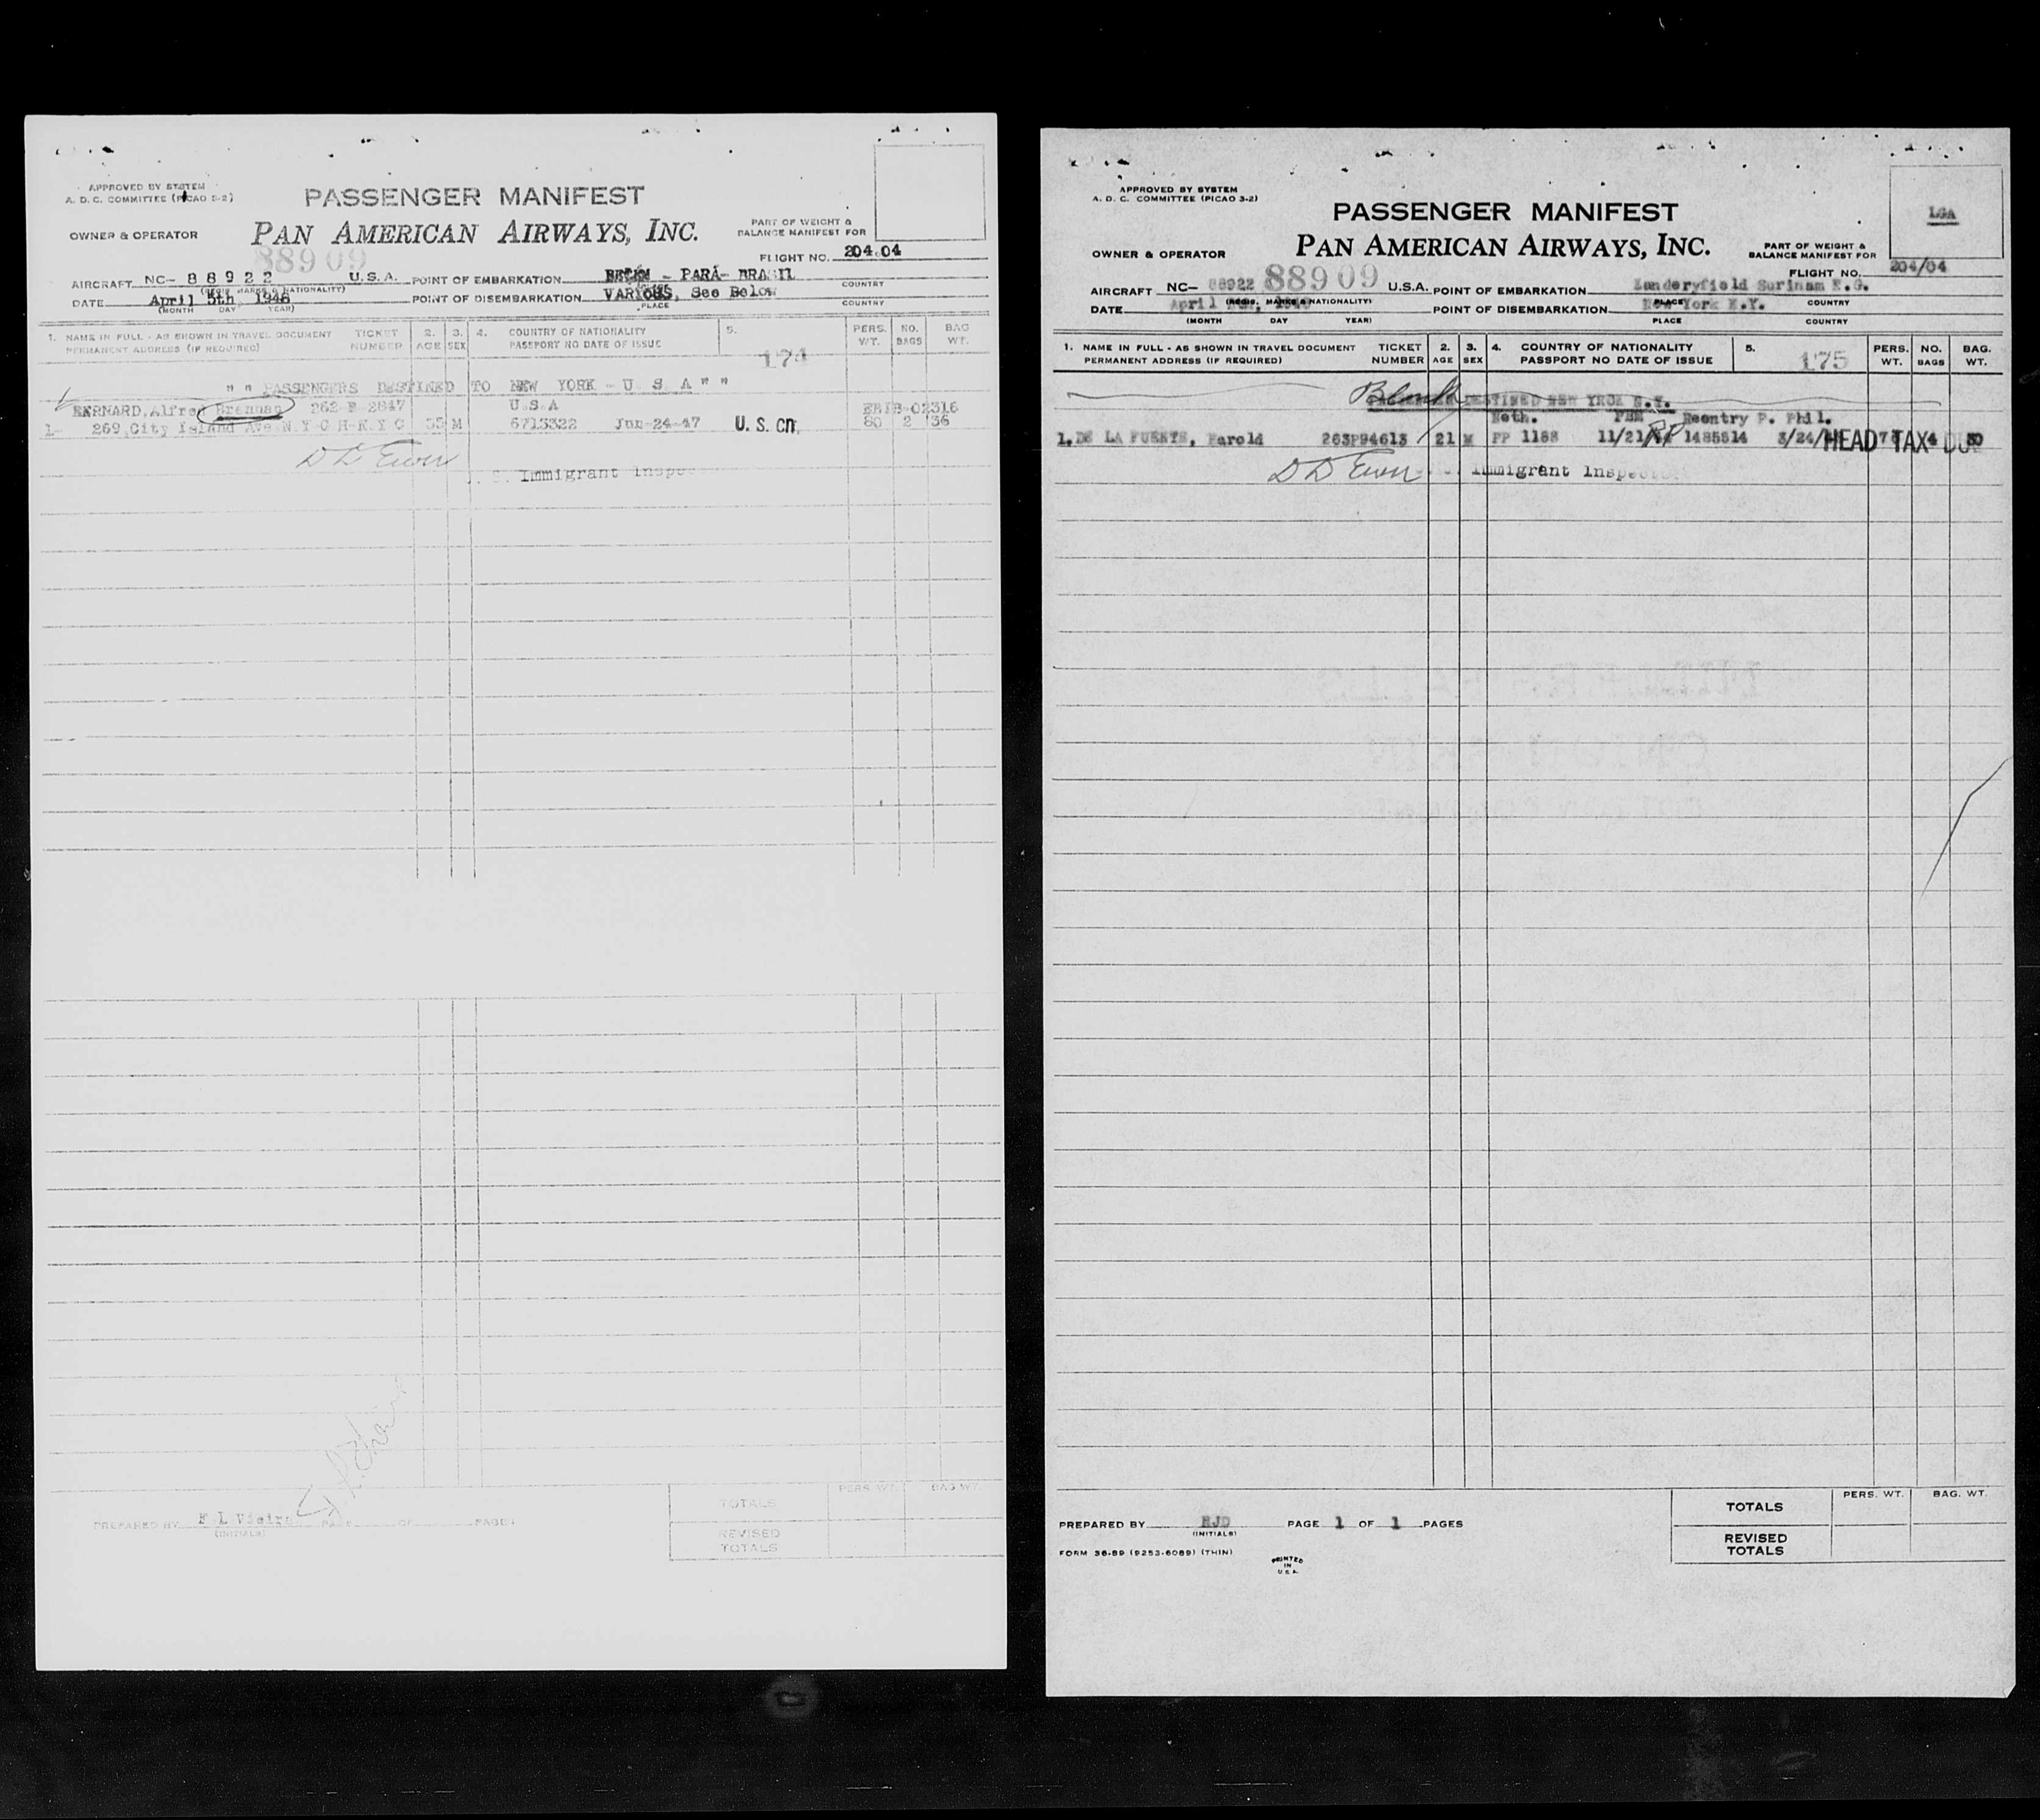 APPROVED BY SYSTEM
A. D. C. COMMITTEE (PICAO 3-2)
PASSENGER MANIFEST
OWNER & OPERATOR
PAN AMERICAN AIRWAYS, INC.
PART OF WEIGHT &
BALANCE MANIFEST FOR
FLIGHT NO. 204.04
88909
AIRCRAFT NC- 88922 U.S.A. POINT OF EMBARKATION BELEM - PARÁ- BRASIL
(REGIS. MARKS & NATIONALITY) COUNTRY
DATE April 5th, 1948 POINT OF DISEMBARKATION VARIOUS, See Below
(MONTH DAY YEAR) PLACE COUNTRY
1. NAME IN FULL - AS SHOWN IN TRAVEL DOCUMENT TICKET 2. 3. 4. COUNTRY OF NATIONALITY 5. PERS. NO. BAG
PERMANENT ADDRESS (IF REQUIRED) NUMBER AGE SEX PASSPORT NO DATE OF ISSUE WT. BAGS WT.
174
" " PASSENGERS DESTINED TO NEW YORK - U S A " "
BERNARD, Alfred Brennan 262 2847 U.S.A
1- 269 City Island Ave N.Y-C H-N.Y C 55 M 6713322 Jun-24-47 U. S. Cn. 80 2 36
D D Ewen
Immigrant Inspe
PREPARED BY F L Vieira PAGE OF PAGES
(INITIALS)
TOTALS
PERS. WT. BAG WT.
REVISED
TOTALS
APPROVED BY SYSTEM
A. D. C. COMMITTEE (PICAO 3-2)
LGA
PASSENGER MANIFEST
OWNER & OPERATOR
PAN AMERICAN AIRWAYS, INC.
PART OF WEIGHT &
BALANCE MANIFEST FOR
FLIGHT NO. 204/04
AIRCRAFT NC- 88922 88909 U.S.A. POINT OF EMBARKATION Zanderyfield Surinam
(REGIS. MARKS & NATIONALITY) PLACE COUNTRY
DATE April POINT OF DISEMBARKATION New York N.Y.
(MONTH DAY YEAR) PLACE COUNTRY
1. NAME IN FULL - AS SHOWN IN TRAVEL DOCUMENT TICKET 2. 3. 4. COUNTRY OF NATIONALITY 5. PERS. NO. BAG.
PERMANENT ADDRESS (IF REQUIRED) NUMBER AGE SEX PASSPORT NO DATE OF ISSUE WT. BAGS WT.
175
Blank DESTINED NEW YROK N.Y.
Neth. PBM Reentry P. Phil.
1. DE LA FUENTE, Harold 263P94613 21 M PP 1188 11/21/ RP 1485514 3/24/ HEAD TAX
D D Ewen
Immigrant Inspe
PREPARED BY HJD PAGE 1 OF 1 PAGES
(INITIALS)
FORM 36-89 (9253-6089) (THIN)
PRINTED
IN
U.S.A.
TOTALS
PERS. WT. BAG. WT.
REVISED
TOTALS